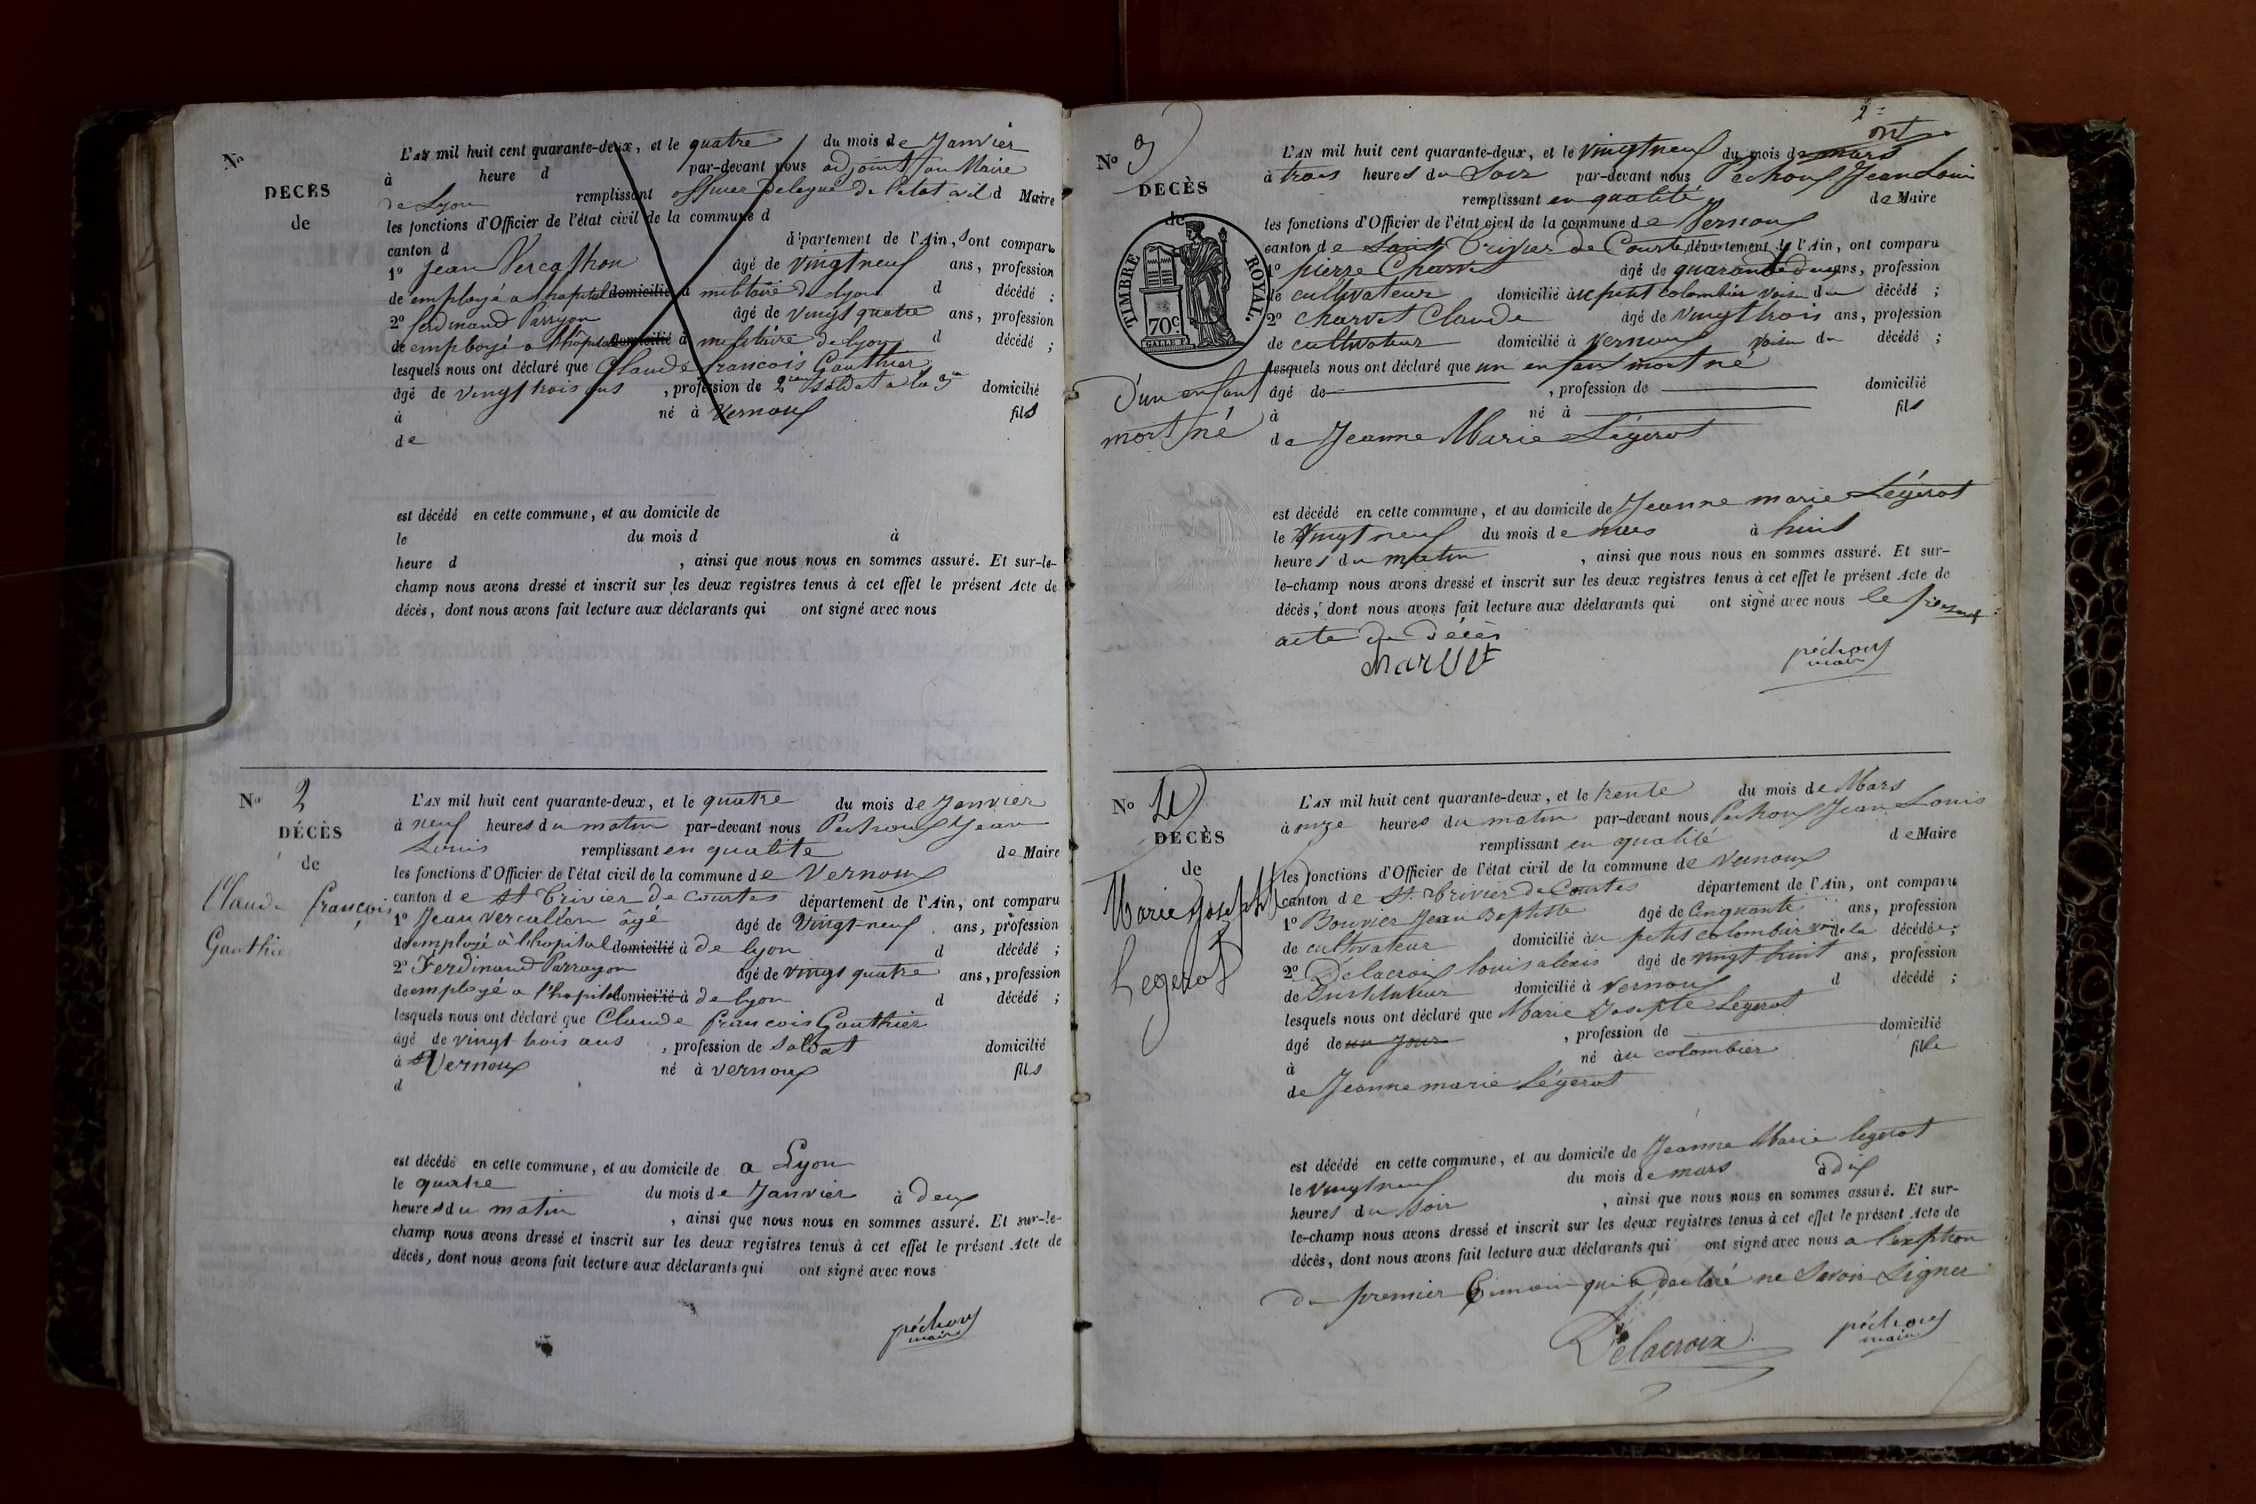 No
DECÈS
de
L'AN mil huit cent quarante-deux, et le quatre du mois de Janvier
à heure d par-devant nous adjoint au Maire
de Lyon remplissant officier delegué de l'etat civil d Maire
les fonctions d'Officier de l'état civil de la commune d
canton d département de l'Ain, sont comparu
1o Jean Vercasson âgé de vingt neuf ans, profession
de employé a l'hopital domicilié à militaire de lyon d décédé ;
2o ferdinand Parrayon âgé de vingt quatre ans, profession
de employé a l'hôpital domicilié à militaire de lyon d décédé ;
lesquels nous ont déclaré que Claude francois Gauthier
âgé de vingt trois ans , profession de soldat a la domicilié
à né à Vernoux fils
de
est décédé en cette commune, et au domicile de
le du mois d à
heure d , ainsi que nous nous en sommes assuré. Et sur-le-
champ nous avons dressé et inscrit sur les deux registres tenus à cet effet le présent Acte de
décès, dont nous avons fait lecture aux déclarants qui ont signé avec nous
No 2
DÉCÈS
de
Claude françois
Gauthier
L'AN mil huit cent quarante-deux, et le quatre du mois de Janvier
à neuf heures du matin par-devant nous Pechoux Jean
Louis remplissant en qualite de Maire
les fonctions d'Officier de l'état civil de la commune de Vernoux
canton de St Trivier de Courtes département de l'Ain, ont comparu
1o Jean Vercasson âgé âgé de Vingt-neuf ans, profession
de employé à l'hopital domicilié à de lyon d décédé ;
2o Ferdinand Parrayon âgé de vingt quatre ans, profession
de employé a l'hopital domicilié à de lyon d décédé ;
lesquels nous ont déclaré que Claude francois Gauthier
âgé de vingt trois ans , profession de soldat domicilié
à Vernoux né à vernoux fils
d
est décédé en cette commune, et au domicile de a Lyon
le quatre du mois de Janvier à deux
heures du matin , ainsi que nous nous en sommes assuré. Et sur-le-
champ nous avons dressé et inscrit sur les deux registres tenus à cet effet le présent Acte de
décès, dont nous avons fait lecture aux déclarants qui ont signé avec nous
péchoux
maire
2
No 3
DECÈS
de
TIMBRE ROYAL.
70c.
d'un enfant
mort né
L'AN mil huit cent quarante-deux, et le vingt neuf du mois de mars
à trois heures du Soir par-devant nous Péchoux Jean Louis
remplissant en qualité de Maire
les fonctions d'Officier de l'état civil de la commune de Vernoux
canton de Saint Trivier de Courtes département de l'Ain, ont comparu
1o pierre Charvet âgé de quarante deux ans, profession
de cultivateur domicilié au petit colombier voisin du décédé ;
2o Charvet Claude âgé de vingt trois ans, profession
de cultivateur domicilié à Vernoux voisin du décédé ;
lesquels nous ont déclaré que un enfant mort né
âgé de , profession de domicilié
à né à fils
de Jeanne Marie Légerot
est décédé en cette commune, et au domicile de Jeanne marie Légerot
le Vingt neuf du mois de mars à huit
heures du matin , ainsi que nous nous en sommes assuré. Et sur-
le-champ nous avons dressé et inscrit sur les deux registres tenus à cet effet le présent Acte de
décès, dont nous avons fait lecture aux déclarants qui ont signé avec nous le présent
acte de décès
charvet
péchoux
maire
No 4
DÉCÈS
de
Marie Josephte
Legerot
L'AN mil huit cent quarante-deux, et le trente du mois de Mars
à onze heures du matin par-devant nous Pechoux Jean Louis
remplissant en qualité de Maire
les fonctions d'Officier de l'état civil de la commune de Vernoux
canton de St. Trivier de Courtes département de l'Ain, ont comparu
1o Bouvier Jean Baptiste âgé de Cinquante ans, profession
de cultivateur domicilié au petit colombier voisin de la décédée ;
2o Délacroix louis alexis âgé de vingt huit ans, profession
de Instituteur domicilié à Vernoux d décédé ;
lesquels nous ont déclaré que Marie Josephte Legerot
âgé de un Jour , profession de domicilié
à né au colombier fille
de Jeanne marie Légerot
est décédé en cette commune, et au domicile de Jeanne Marie legerot
le vingt neuf du mois de mars à dix
heures du soir , ainsi que nous nous en sommes assuré. Et sur-
le-champ nous avons dressé et inscrit sur les deux registres tenus à cet effet le présent Acte de
décès, dont nous avons fait lecture aux déclarants qui ont signé avec nous a l'exption
du premier témoin qui a déclaré ne Savoir Signer
Délacroix
péchoux
maire